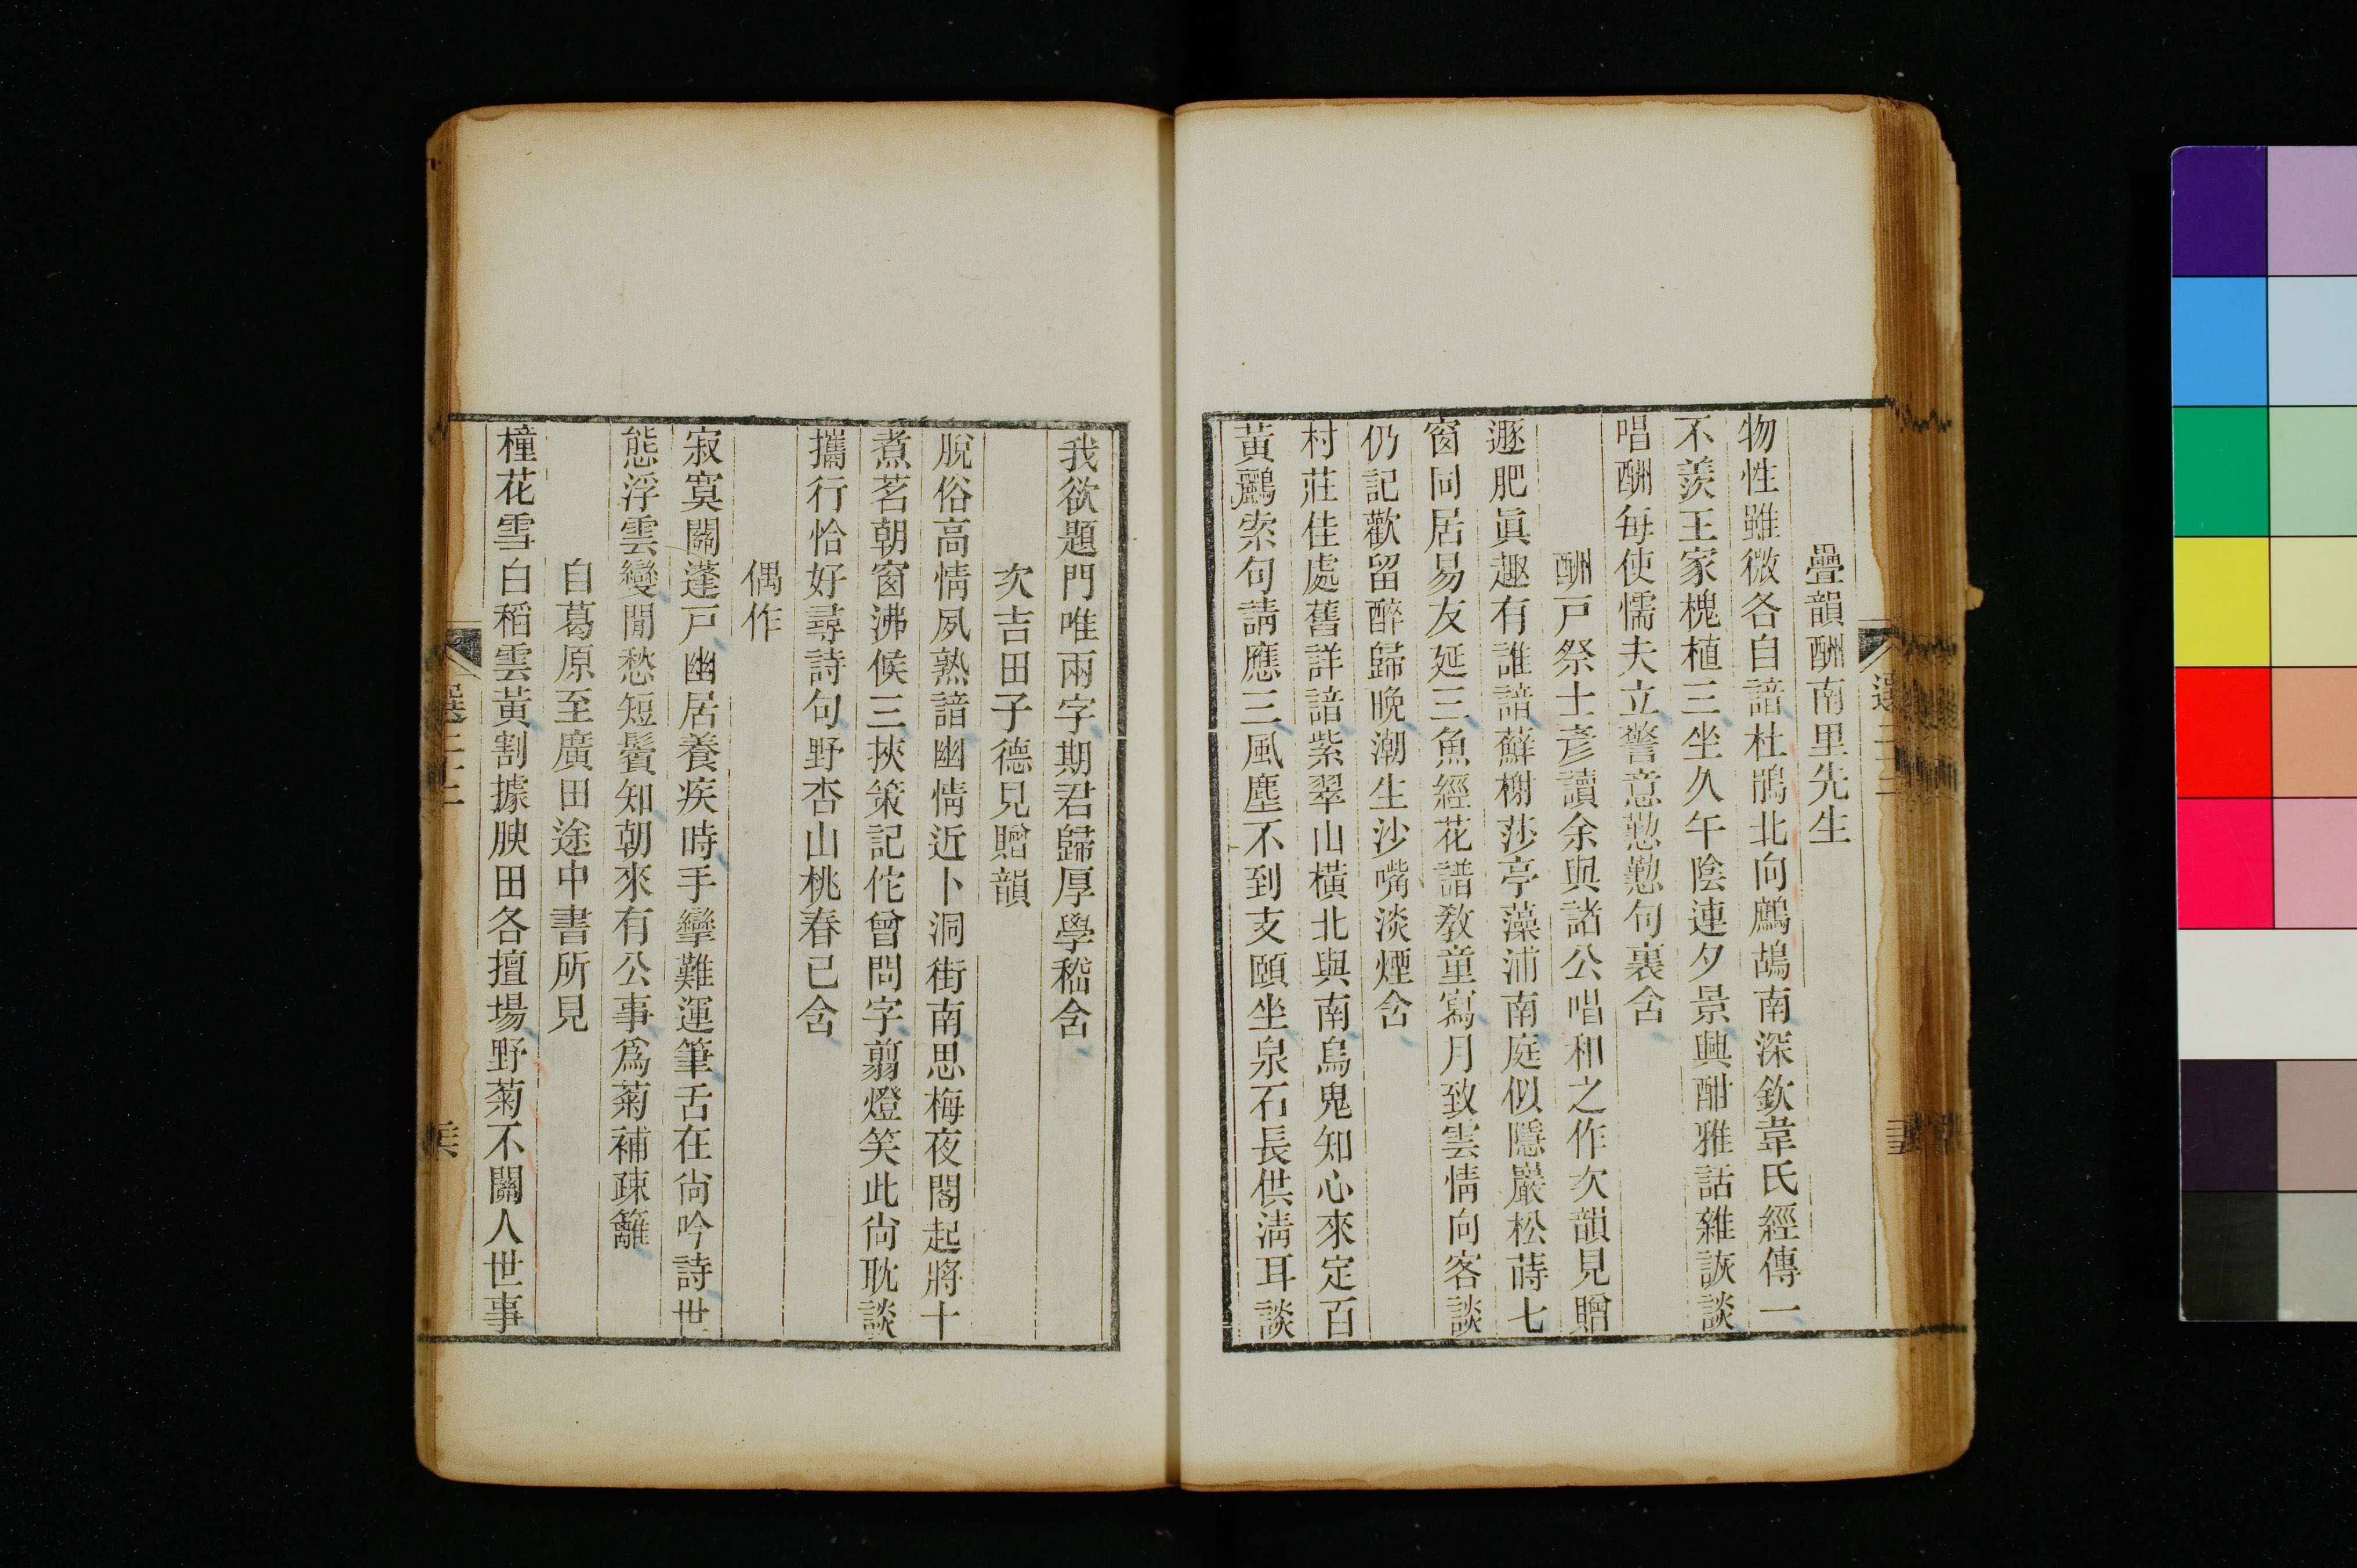 疊韻酬南里先生
物性雖微各自諳杜鵑北向鷓鴣南深欽韋氏經傳一
不羨王家槐植三坐久午陰連夕景興酣雅話雜詼談
唱酬每使懦夫立警意懃懃句裏含
酬戸祭士彥讀余與諸公唱和之作次韻見贈
遯肥眞趣有誰諳蘚榭莎亭藻浦南庭似隱巖松蒔七
窗同居易友延三魚經花譜教童寫月致雲情向客談
仍記歡留醉歸晚潮生沙嘴淡煙含
村莊佳處舊詳諳紫翠山橫北與南烏鬼知心來定百
黃鸝索句請應三風塵不到支頤坐泉石長供淸耳談
我欲題門唯兩字期君歸厚學嵇含
次吉田子德見贈韻
脫俗高情夙熟諳幽情近卜洞街南思梅夜閣起將十
煮茗朝窗沸候三挾策記佗曾問字翦燈笑此尙耽談
攜行恰好尋詩句野杏山桃春已含
偶作
寂寞關蓬戸幽居養疾時手攣難運筆舌在尙吟詩世
態浮雲變閒愁短鬢知朝來有公事爲菊補疎籬
自葛原至廣田途中書所見
橦花雪白稻雲黃割據腴田各擅場野菊不關人世事